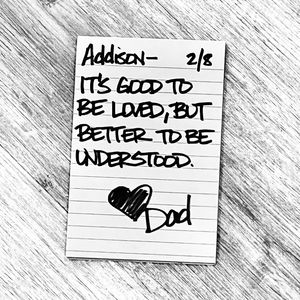 Addison— 2/8
IT'S GOOD TO
BE LOVED, BUT
BETTER TO BE
UNDERSTOOD.
Dad